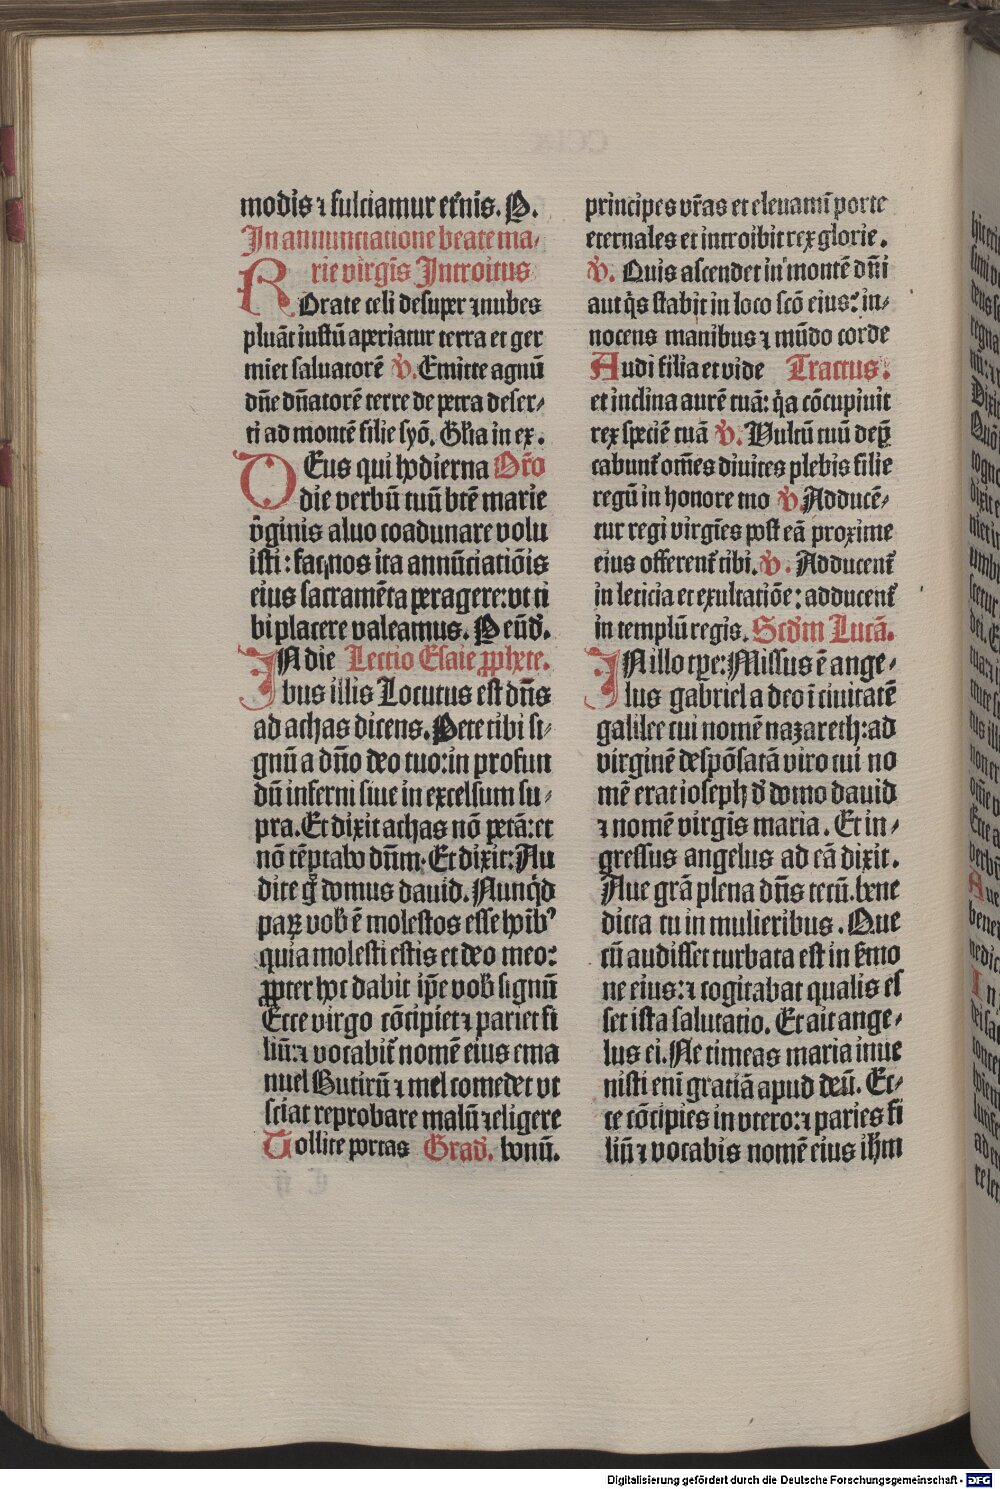 modis ⁊ fulciamur et̄nis. P.
In annunciatione beate ma⸗
rie virgīs Introitus
ROrate celi desuper ⁊nubes
pluāt iustū aperiatur terra et ger
miet saluatorē V̄. Emitte agnū
dn̄e dn̄atorē terre de petra deser⸗
ti ad montē filie syō. Gl̄ia in ex.
DEus qui hodierna Or̄o
die verbū tuū btē marie
v̄ginis aluo coadunare volu
isti: fac nos ita annūciatiōis
eius sacramēta peragere: vt ti
bi placere valeamus. P eūd̄.
IN die Lectio Esaie ꝓphete.
bus illis Locutus est dn̄s
ad achas dicens. Pete tibi si⸗
gnū a dn̄o deo tuo: in profun
dū inferni siue in excelsum su⸗
pra. Et dixit achas nō petā: et
nō tēptabo dn̄m. Et dixit: Au
dite g̊ domus dauid. Nunqd̄
paꝝ vob̄ ē molestos esse hoībꝰ
quia molesti estis et deo meo:
ꝓpter hoc dabit ip̄e vob̄ signū
Ecce virgo cōcipiet ⁊ pariet fi
liū: ⁊ vocabit̄ nomē eius ema
nuel Butirū ⁊ mel comedet vt
sciat reprobare malū ⁊eligere
Tollite portas Grad̄. bonū.
principes vr̄as et eleuamī porte
eternales et introibit rex glorie.
V̄. Quis ascendet in montē dn̄i
aut q̄s stabit in loco scō eius: in⸗
nocens manibus ⁊ mūdo corde
Audi filia et vide Tractus.
et inclina aurē tuā: q̄a cōcupiuit
rex speciē tuā V̄. Vultū tuū dep̄
cabunt̄ om̄es diuites plebis filie
regū in honore tuo V̄. Adducē⸗
tur regi virgīes post eā proxime
eius offerent̄ tibi. V̄. Adducent̄
in leticia et exultatiōe: adducent̄
in templū regis. Scd̄m Lucā.
IN illo tꝑe: Missus ē ange⸗
lus gabriel a deo ī ciuitatē
galilee cui nomē nazareth: ad
virginē despōsatā viro cui no
mē erat ioseph d̄ domo dauid
⁊ nomē virgīs maria. Et in⸗
gressus angelus ad eā dixit.
Aue grā plena dn̄s tecū. bene
dicta tu in mulieribus. Que
cū audisset turbata est in s̄mo
ne eius: ⁊ cogitabat qualis es
set ista salutatio. Et ait ange⸗
lus ei. Ne timeas maria inue
nisti enī gratiā apud deū. Ec⸗
ce cōcipies in vtero: ⁊ paries fi
liū ⁊ vocabis nomē eius ihm
Digitalisierung gefördert durch die Deutsche Forschungsgemeinschaft - DFG